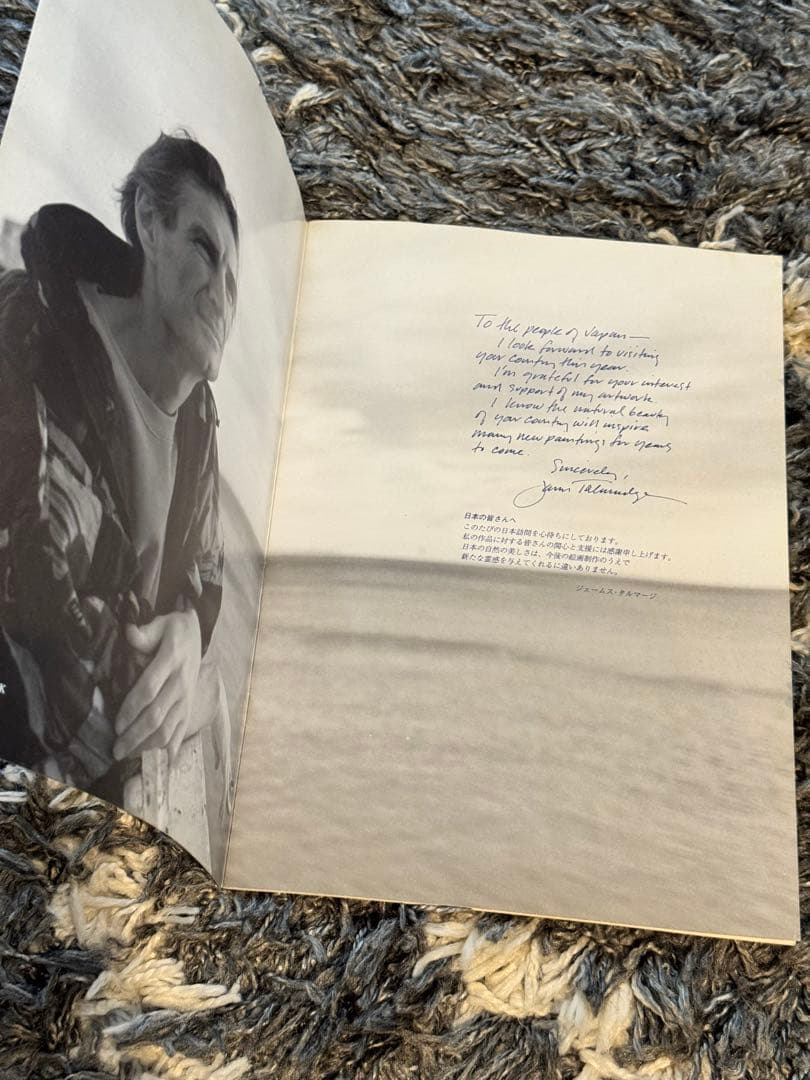 To the people of Japan—
I look forward to visiting
your country this year.
I'm grateful for your interest
and support of my artwork.
I know the natural beauty
of your country will inspire
many new paintings for years
to come.
Sincerely,
James Talmadge
日本の皆さんへ
このたびの日本訪問を心待ちにしております。
私の作品に対する皆さんの関心と支援には感謝申し上げます。
日本の自然の美しさは、今後の絵画制作のうえで
新たな霊感を与えてくれるに違いありません。
ジェームス・タルマージ